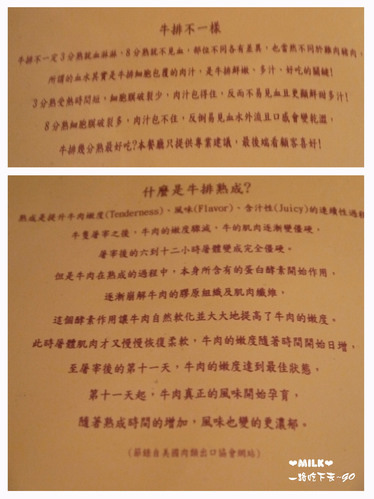 牛排不一樣
牛排不一定3分熟就血淋淋，8分熟就不見血，部位不同各有差異，也當然不同於雞肉豬肉。
所謂的血水其實是牛排細胞包覆的肉汁，是牛排鮮嫩、多汁、好吃的關鍵！
3分熟受熱時間短，細胞膜破裂少，肉汁包得住，反而不易見血且更顯鮮甜多汁！
8分熟細胞膜破裂多，肉汁包不住，反倒易見血水外流且口感會變乾澀，
牛排幾分熟最好吃？本餐廳只提供專業建議，最後端看顧客喜好！
什麼是牛排熟成？
熟成是提升牛肉嫩度(Tenderness)、風味(Flavor)、含汁性(Juicy)的連續性過程
牛隻屠宰之後，牛肉的嫩度驟減，牛的肌肉逐漸僵硬。
屠宰後的六到十二小時屠體變成完全僵硬。
但是牛肉在熟成的過程中，本身所含有的蛋白酵素開始作用，
逐漸崩解牛肉的膠原組織及肌肉纖維。
這個酵素作用讓牛肉自然軟化並大大地提高了牛肉的嫩度。
此時屠體肌肉才又慢慢恢復柔軟，牛肉的嫩度隨著時間開始日增，
至屠宰後的第十一天，牛肉的嫩度達到最佳狀態。
第十一天起，牛肉真正的風味開始孕育，
隨著熟成時間的增加，風味也變的更濃郁。
(節錄自美國肉類出口協會網站)
❤MILK❤
一路吃下去~go